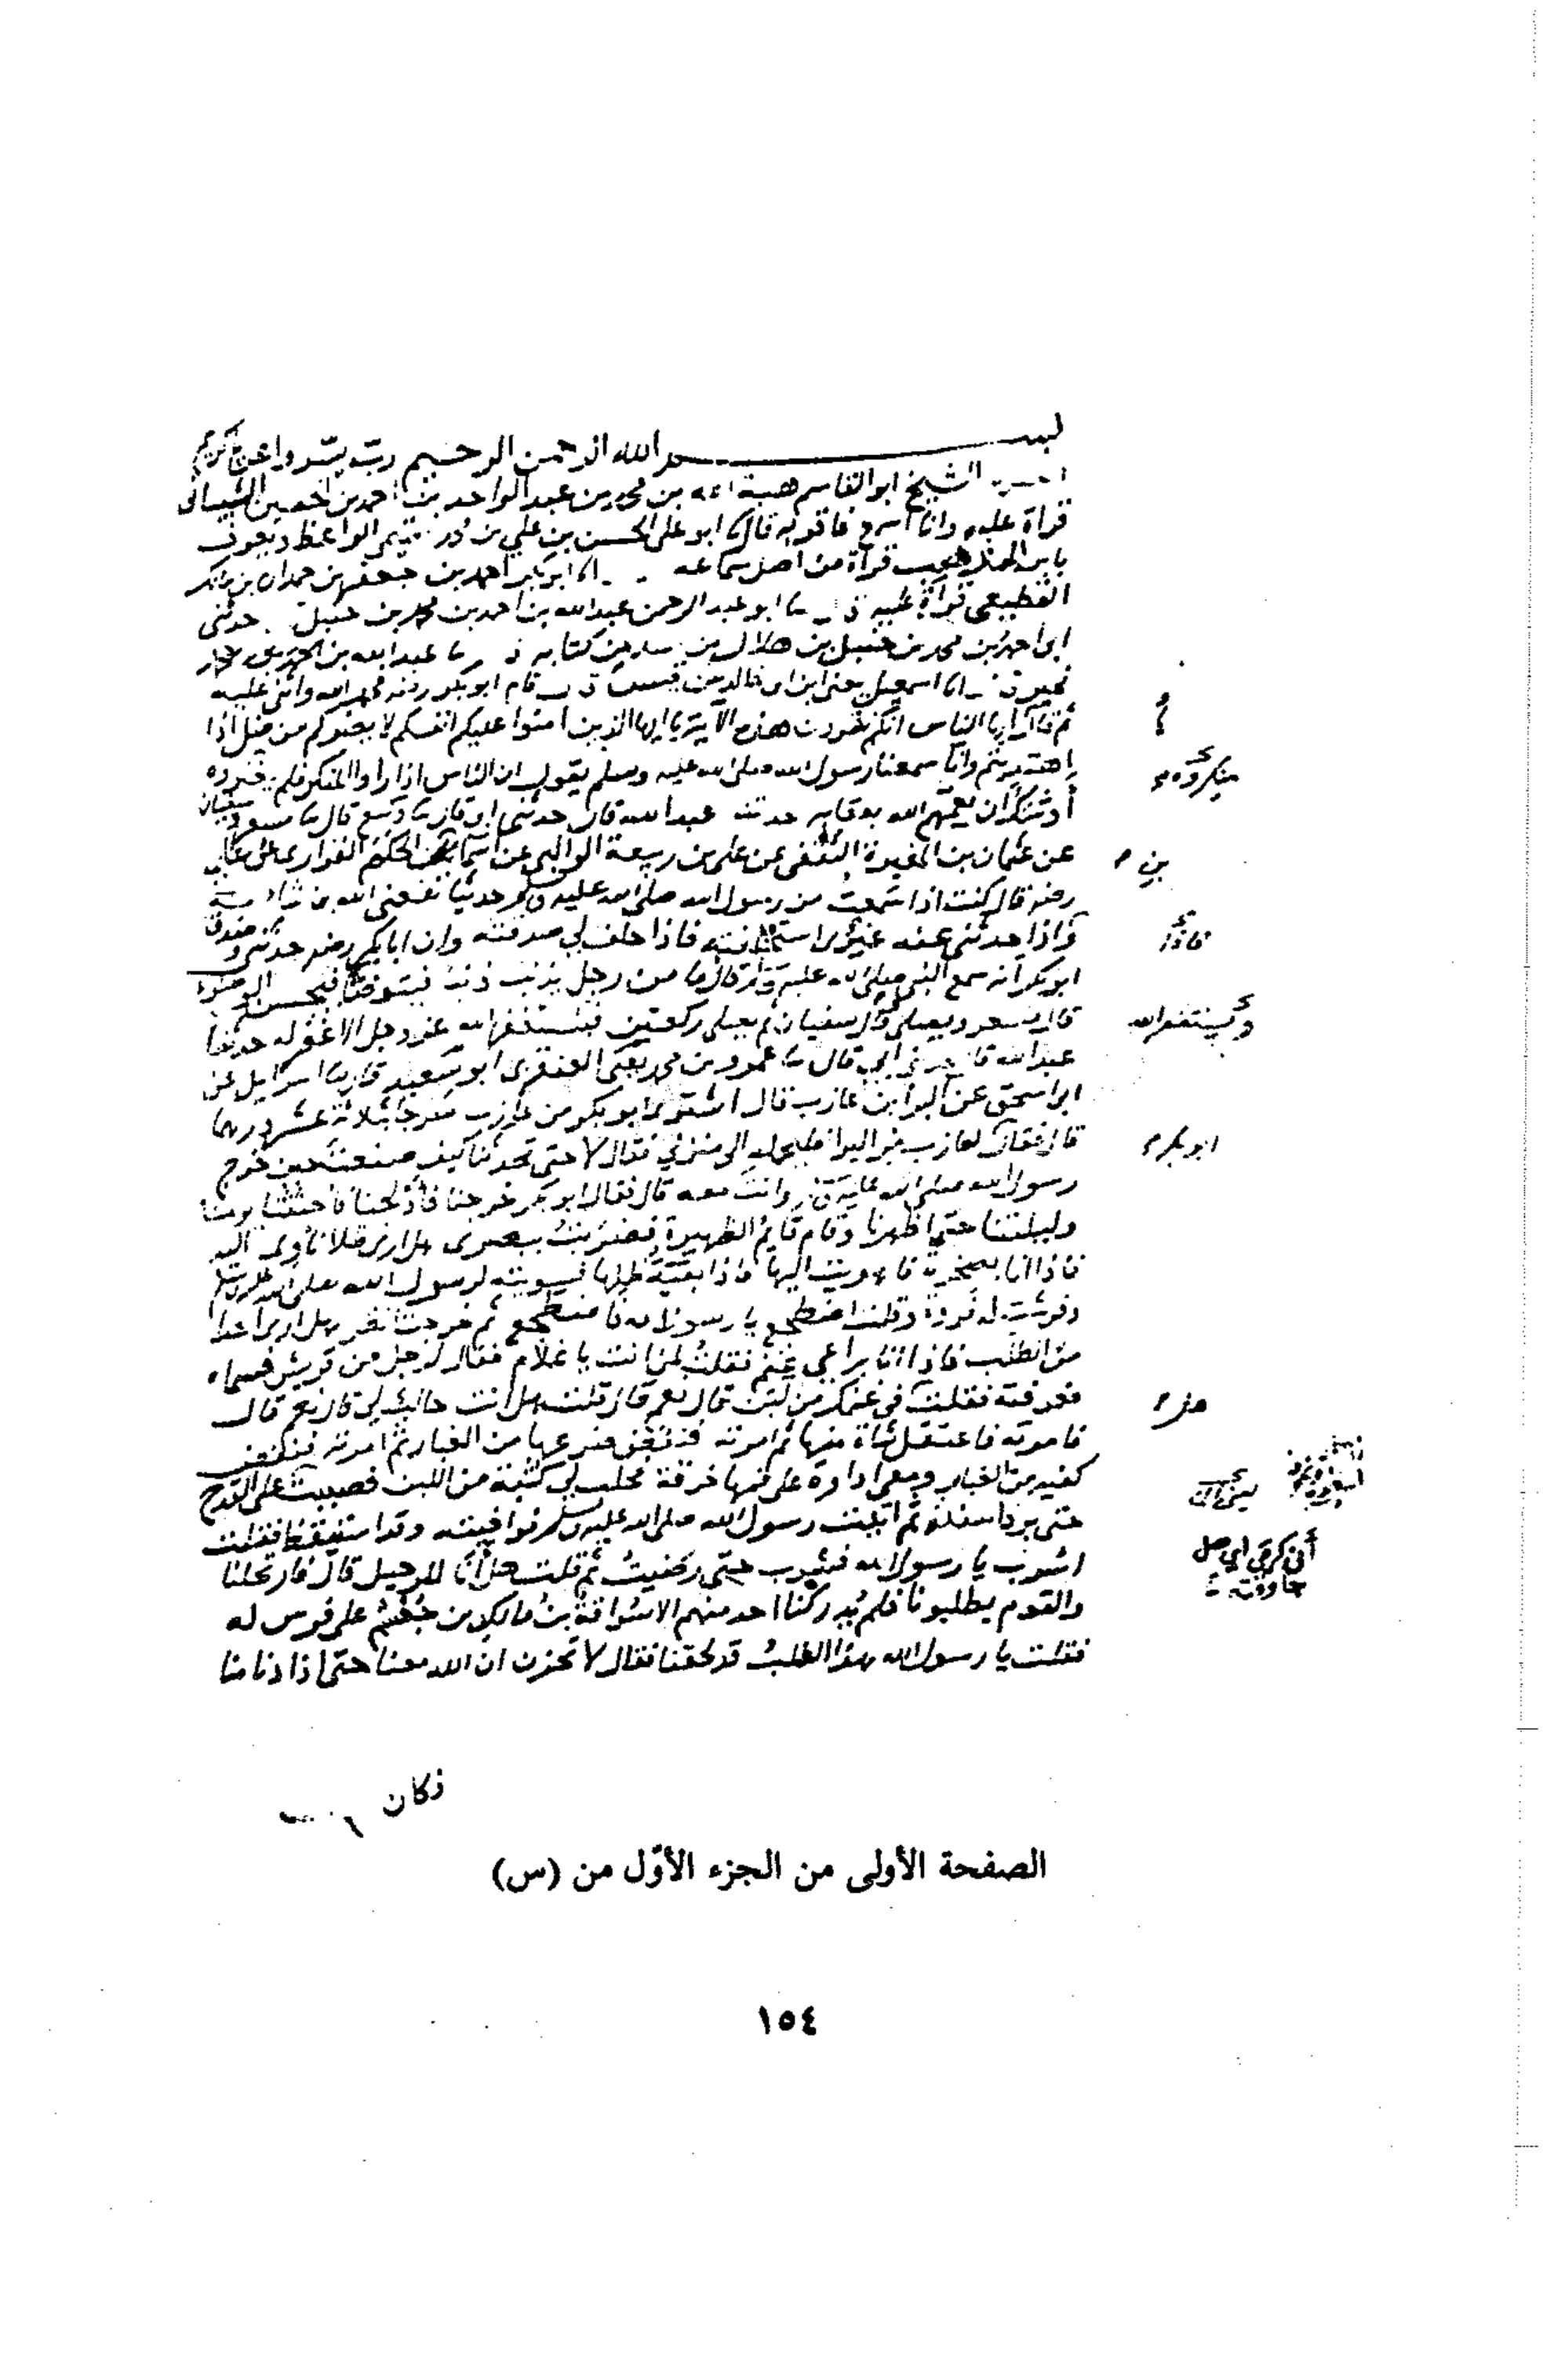 بسم الله الرحمن الرحيم رب يسر واعن يا كريم
الشيخ ابو القاسم هبة الله بن محمد بن عبد الواحد بن احمد بن الحصين الشيباني
قراة عليه وانا اسمع فاقر به قال ابو على الحسن بن علي بن الواعظ ويعرف
بابن المذهب قراة من اصل سماعه انا ابو بكر احمد بن جعفر بن حمدان بن مالك
القطيعى قراة عليه ثنا ابو عبد الرحمن عبد الله بن احمد بن محمد بن حنبل حدثنى
ابى احمد بن محمد بن حنبل بن هلال بن اسد من كتابه ثنا عبد الله بن
نمير انا اسمعيل يعنى ابن ابى خالد عن قيس قام ابو بكر رضه فحمد الله واثنى عليه
ثم قال يا ايها الناس انكم تقرون هذه الآية يا ايها الذين امنوا عليكم انفسكم لا يضركم من ضل اذا
اهتديتم وانا سمعنا رسول الله صلى الله عليه وسلم يقول ان الناس اذا راوا المنكر فلم
أوشك أن يعمهم الله بعقابه حدثنا عبد الله قال حدثنى ابى قال ثنا وكيع قال ثنا مسعر وسفيان
عن عثمان بن المغيرة الثقفى عن على بن ربيعة الوالبى عن اسما بن الحكم الفزارى عن على
رضه قال كنت اذا سمعت من رسول الله صلى الله عليه وسلم حديثا نفعنى الله بما شا منه
واذا حدثنى عنه غيرى استحلفته فاذا حلف لى صدقته وان ابا بكر رضه حدثنى وصدق
ابو بكر انه سمع النبى صلى الله عليه وسلم قال ما من رجل يذنب ذنبا فيتوضأ فيحسن الوضوء
قال مسعر ويصلى وقال سفيان ثم يصلى ركعتين فيستغفر الله عز وجل الا غفر له حدثنا
عبد الله قال حدثنى ابى قال ثنا عمرو بن محمد يعنى العنقزى ابو سعيد قال ثنا اسرايل عن
ابى اسحق عن البرا بن عازب قال اشترى ابو بكر من عازب سرجا بثلاثة عشر درهما
قال فقال لعازب مر البرا فليحمله الى منزلى فقال لا حتى تحدثنا كيف صنعت حين خرج
رسول الله صلى الله عليه وسلم وانت معه قال فقال ابو بكر خرجنا فأدلجنا فأحثثنا يومنا
وليلتنا حتى اظهرنا وقام قايم الظهيرة فضربت ببصرى هل ارى ظلا نأوى اليه
فاذا انا بصخرة فاهويت اليها فاذا بقية ظلها فسويته لرسول الله صلى الله عليه وسلم
وفرشت له فروة وقلت اضطجع يا رسول الله فاضطجع ثم خرجت انظر هل ارى احدا
من الطلب فاذا انا براعى غنم فقلت لمن انت يا غلام فقال لرجل من قريش فسماه
فعرفته فقلت فى غنمك من لبن قال نعم قال قلت هل انت حالب لى قال نعم قال
فامرته فاعتقل شاة منها ثم امرته فنفض ضرعها من الغبار ثم امرته فنفض
كفيه من الغبار ومعى اداوة على فمها خرقة فحلب لى كثبة من اللبن فصببت على القدح
حتى برد اسفله ثم اتيت رسول الله صلى الله عليه وسلم فوافيته وقد استيقظ فقلت
اشرب يا رسول الله فشرب حتى رضيت ثم قلت هل أنا للرحيل قال فارتحلنا
والقوم يطلبونا فلم يدركنا احد منهم الا سراقة بن مالك بن جعشم على فرس له
فقلت يا رسول الله هذا الطلب قد لحقنا فقال لا تحزن ان الله معنا حتى اذا دنا منا
بن
فاذا
ويستغفر الله
ابو بكر
فكان
الصفحة الأولى من الجزء الأوّل من (س)
١٥٤